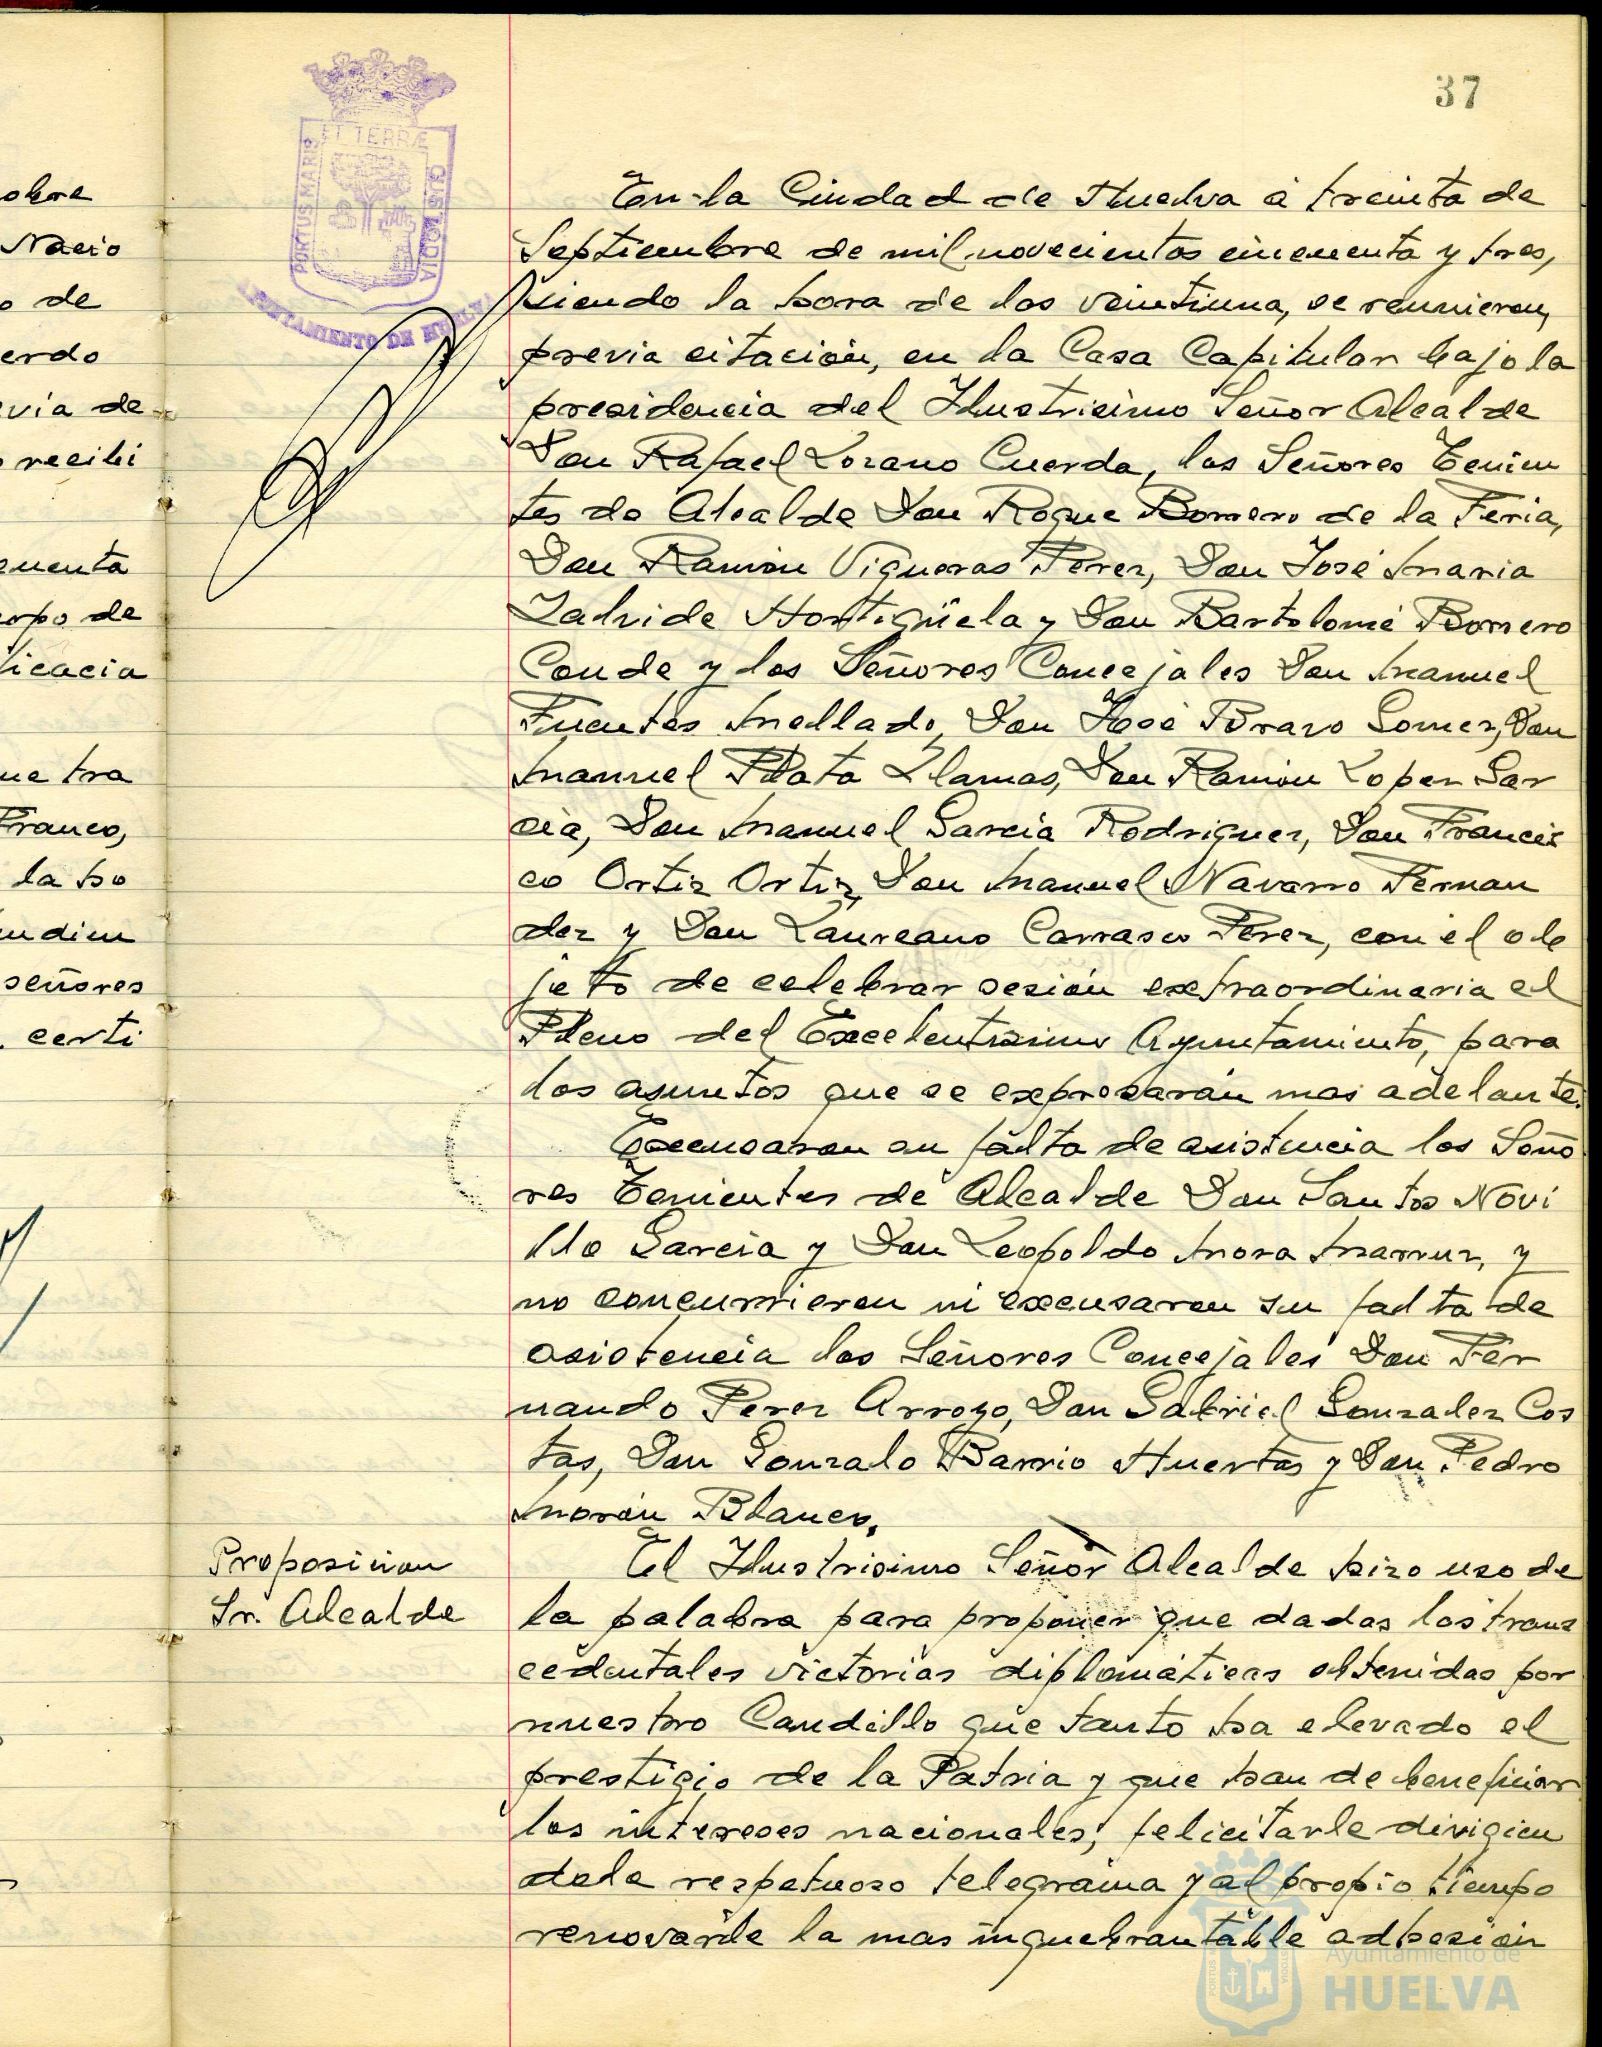 37
ET TERRÆ
PORTUS MARIS
CUSTODIA
AYUNTAMIENTO DE HUELVA
En la Ciudad de Huelva á treinta de
Septiembre de mil novecientos cincuenta y tres,
siendo la hora de las veintiuna, se reunieron,
previa citación, en la Casa Capitular bajo la
presidencia del Ilustrisimo Señor Alcalde
Don Rafael Lozano Cuerda, los Señores Tenien
tes de Alcalde Don Roque Borrero de la Feria,
Don Ramón Vigueras Perez, Don José Maria
Zalvide Hortigüela y Don Bartolomé Borrero
Conde y los Señores Concejales Don Manuel
Fuentes Mellado, Don José Bravo Gomez, Don
Manuel Plata Llamas, Don Ramón Lopez Gar
cia, Don Manuel Garcia Rodriguez, Don Francis
co Ortiz Ortiz, Don Manuel Navarro Fernan
dez y Don Laureano Carrasco Perez, con el ob
jeto de celebrar sesión extraordinaria el
Pleno del Excelentisimo Ayuntamiento, para
los asuntos que se expresarán mas adelante.
Excusaron su falta de asistencia los Seño
res Tenientes de Alcalde Don Santos Novi
llo Garcia y Don Leopoldo Mora y
no concurrieron ni excusaron su falta de
asistencia los Señores Concejales Don Fer
nando Perez Arroyo, Don Gabriel Gonzalez Cos
tas, Don Gonzalo Barrio Huertas y Don Pedro
Morón Blanco.
Proposicion
Sr. Alcalde
El Ilustrisimo Señor Alcalde hizo uso de
la palabra para proponer que dadas las trans
cedentales victorias diplomáticas obtenidas por
nuestro Caudillo que tanto ha elevado el
prestigio de la Patria y que han de beneficiar
los intereses nacionales, felicitarle dirigien
dole respetuoso telegrama y al propio tiempo
renovarle la mas inquebrantable adhesión
obre
Nacio
o de
erdo
via de
recibi
cuenta
erpo de
icacia
ue tra
Franco,
la ho
ndien
señores
certi
Ayuntamiento de
HUELVA